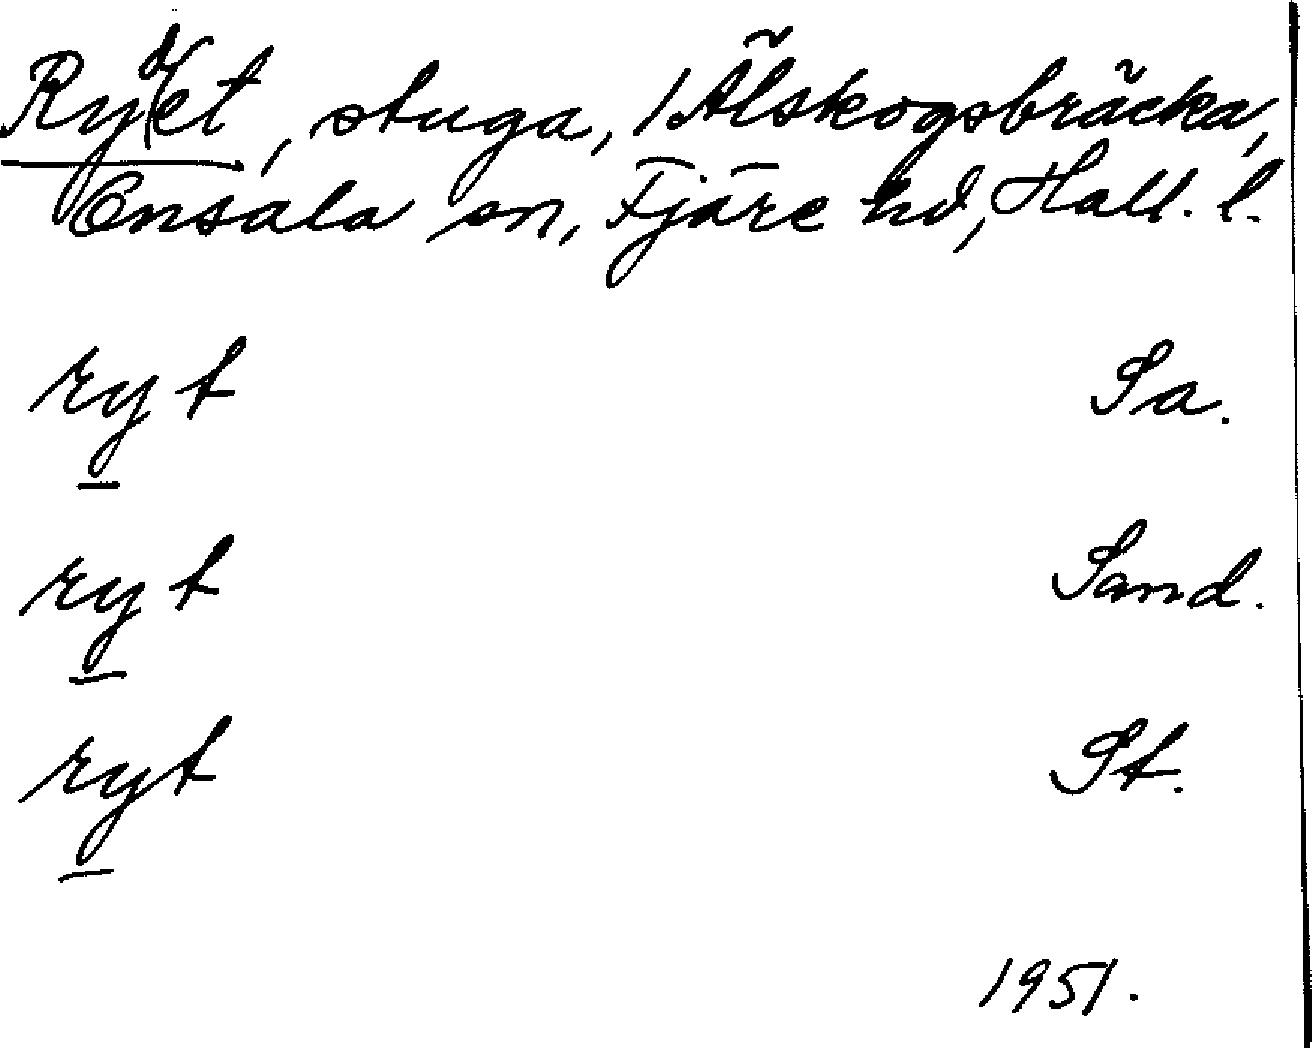 Rydet, stuga, 1 Älskogsbräcka,
Onsala sn, Fjäre hd, Hall. l.
ryt Sa.
ryt Sand.
ryt St.
1951.